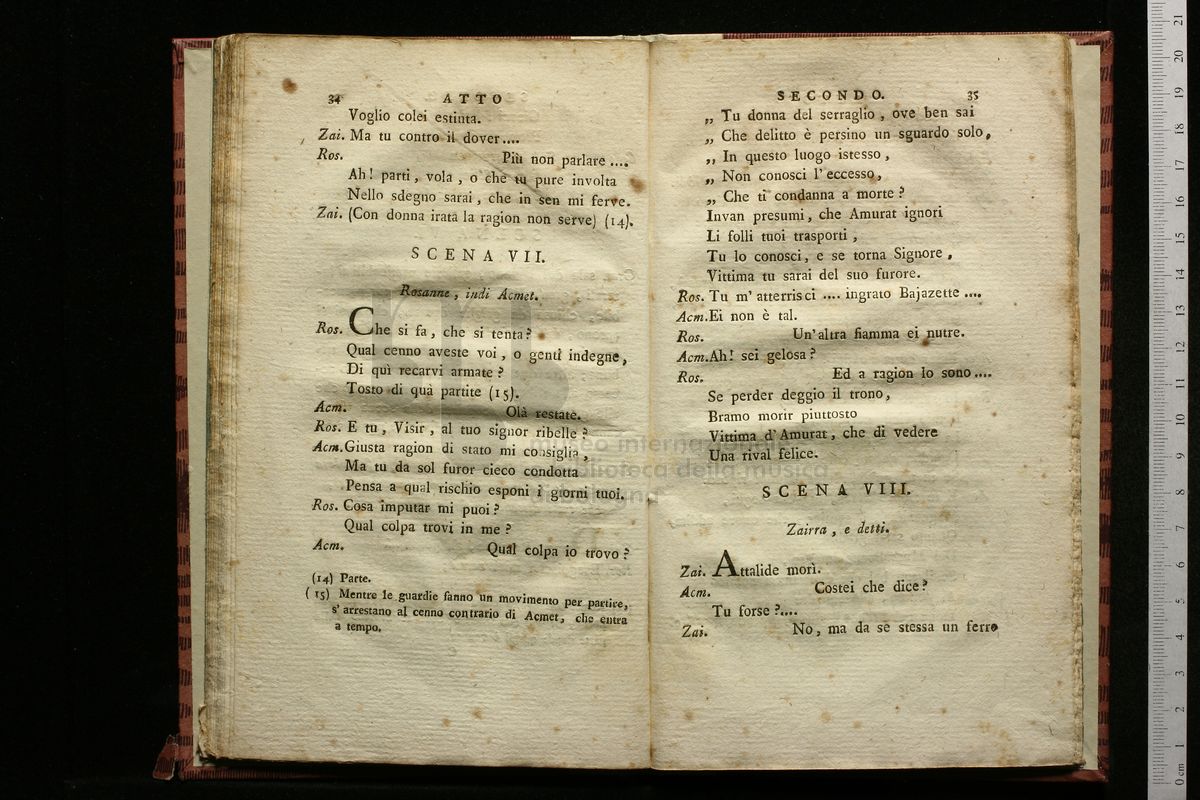 34 ATTO
Voglio colei estinta.
Zai. Ma tu contro il dover....
Ros. Più non parlare ....
Ah! parti, vola, o che tu pure involta
Nello sdegno sarai, che in sen mi ferve.
Zai. (Con donna irata la ragion non serve) (14).
SCENA VII.
Rosanne, indi Acmet.
Ros. Che si fa, che si tenta?
Qual cenno aveste voi, o genti indegne,
Di quì recarvi armate?
Tosto di quà partite (15).
Acm. Olà restate.
Ros. E tu, Visir, al tuo signor ribelle?
Acm. Giusta ragion di stato mi consiglia,
Ma tu da sol furor cieco condotta
Pensa a qual rischio esponi i giorni tuoi.
Ros. Cosa imputar mi puoi?
Qual colpa trovi in me?
Acm. Qual colpa io trovo?
(14) Parte.
(15) Mentre le guardie fanno un movimento per partire,
s' arrestano al cenno contrario di Acmet, che entra
a tempo.
SECONDO. 35
„ Tu donna del serraglio, ove ben sai
„ Che delitto è persino un sguardo solo,
„ In questo luogo istesso,
„ Non conosci l' eccesso,
„ Che ti condanna a morte?
Invan presumi, che Amurat ignori
Li folli tuoi trasporti,
Tu lo conosci, e se torna Signore,
Vittima tu sarai del suo furore.
Ros. Tu m' atterrisci .... ingrato Bajazette ....
Acm. Ei non è tal.
Ros. Un'altra fiamma ei nutre.
Acm. Ah! sei gelosa?
Ros. Ed a ragion lo sono....
Se perder deggio il trono,
Bramo morir piuttosto
Vittima d' Amurat, che di vedere
Una rival felice.
SCENA VIII.
Zairra, e detti.
Zai. Attalide morì.
Acm. Costei che dice?
Tu forse?....
Zai. No, ma da se stessa un ferro
museo internazionale
biblioteca della musica
di bologna
0 cm 1 2 3 4 5 6 7 8 9 10 11 12 13 14 15 16 17 18 19 20 21